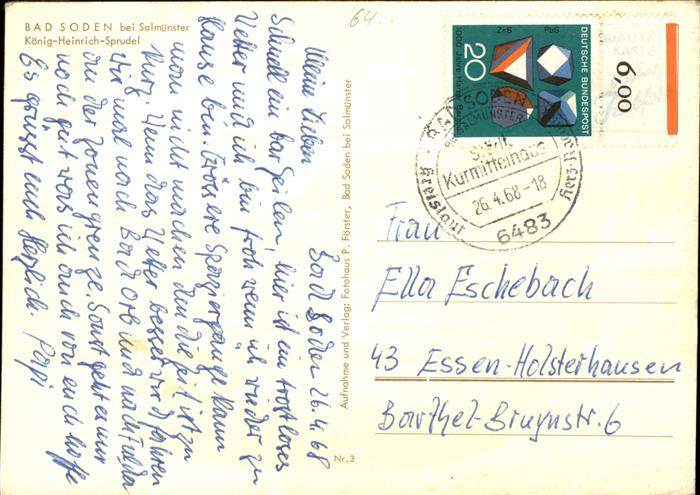 BAD SODEN bei Salmünster
König-Heinrich-Sprudel
64.
Bad Soden 26.4.68
Meine Lieben
Schnell ein par Zeilen, hier ist ein trostloses
Wetter und ich bin froh wenn ich wieder zu
Hause bin. Grössere Spaziergänge kann
man nicht machen den die Zeit ist zu
kurz. Wenn das Wetter besser wird fahren
wir mal nach Bad Orb und nach Fulda
an die Zonengrenze. Sonst geht es mir
noch gut was ich auch von euch hoffe
Es grüsst euch Herzlich. Papi
Aufnahme und Verlag: Fotohaus P. Förster, Bad Soden bei Salmünster
Nr. 3
ZnS PbS
DEUTSCHE BUNDESPOST
20
1000 Jahre Harzer Bergbau
6,00
BAD SODEN
SALMÜNSTER
Städt.
Kurmittelhaus
26.4.68-18
6483
Frau
Ella Eschebach
43 Essen-Holsterhausen
Barthel-Bruynstr. 6